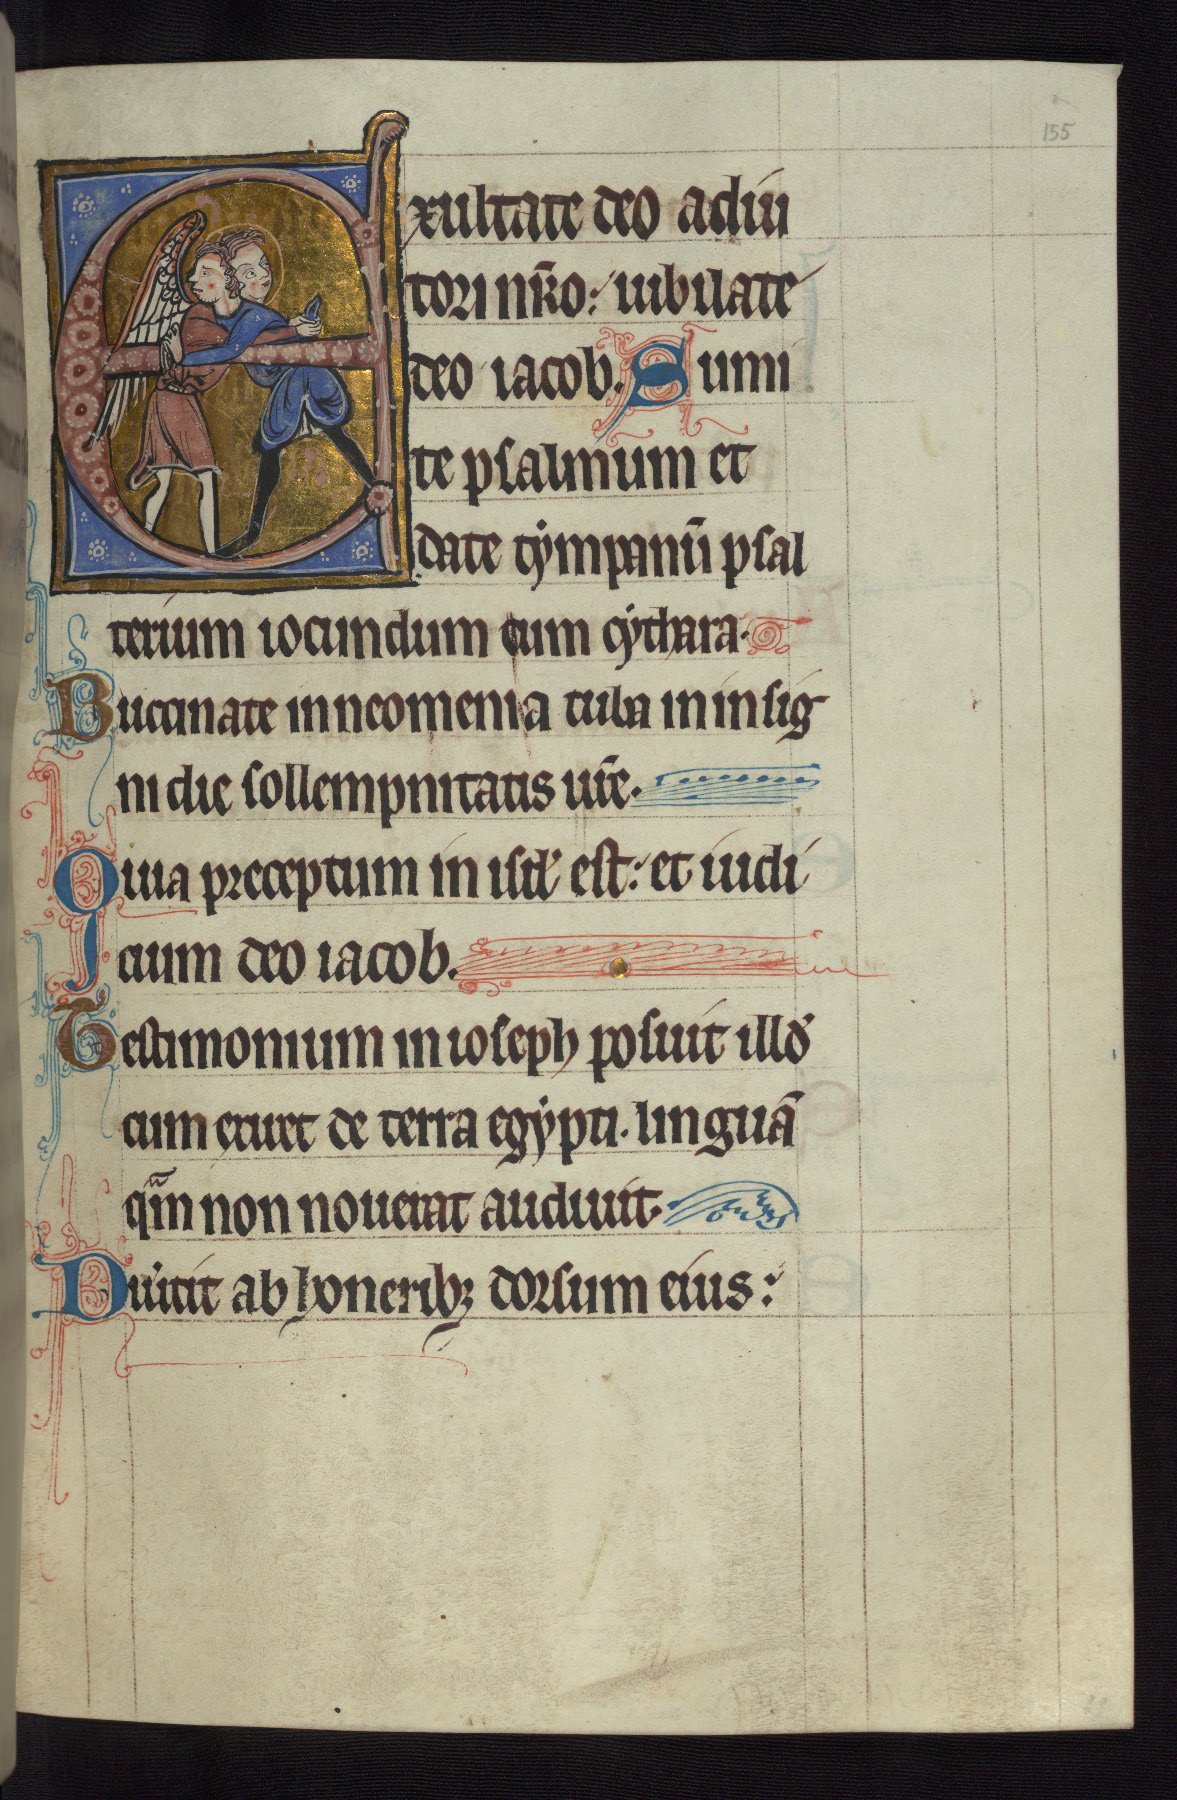 155
Exultate deo adiu
tori nr̄o: iubilate
deo iacob. Sumi
te psalmum et
date tẏmpanū psal
terium iocundum cum cẏthara.
Buccinate in neomenia tuba in insig
ni die sollempnitatis ur̄e.
Quia preceptum in isrl̄ est: et iudi
cium deo iacob.
Testimonium in ioseph posuit illd̄
cum exiret de terra egẏpti. linguā
qm̄ non nouerat audiuit.
Diu͛tit ab honerib; dorsum eius: